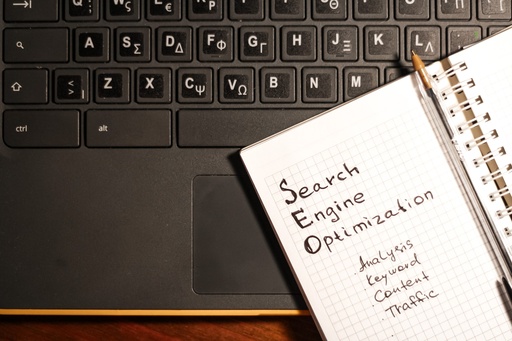 Q W ς E € R ρ
A S Σ D Δ F Φ G Γ H J Ξ K L Λ
< > | Z X C Ψ V Ω B N M
ctrl alt
Search
Engine
Optimization
Analysis
Keyword
Content
Traffic